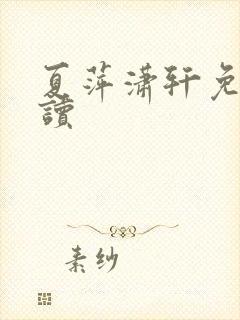 夏萍潇轩免
读
素纱